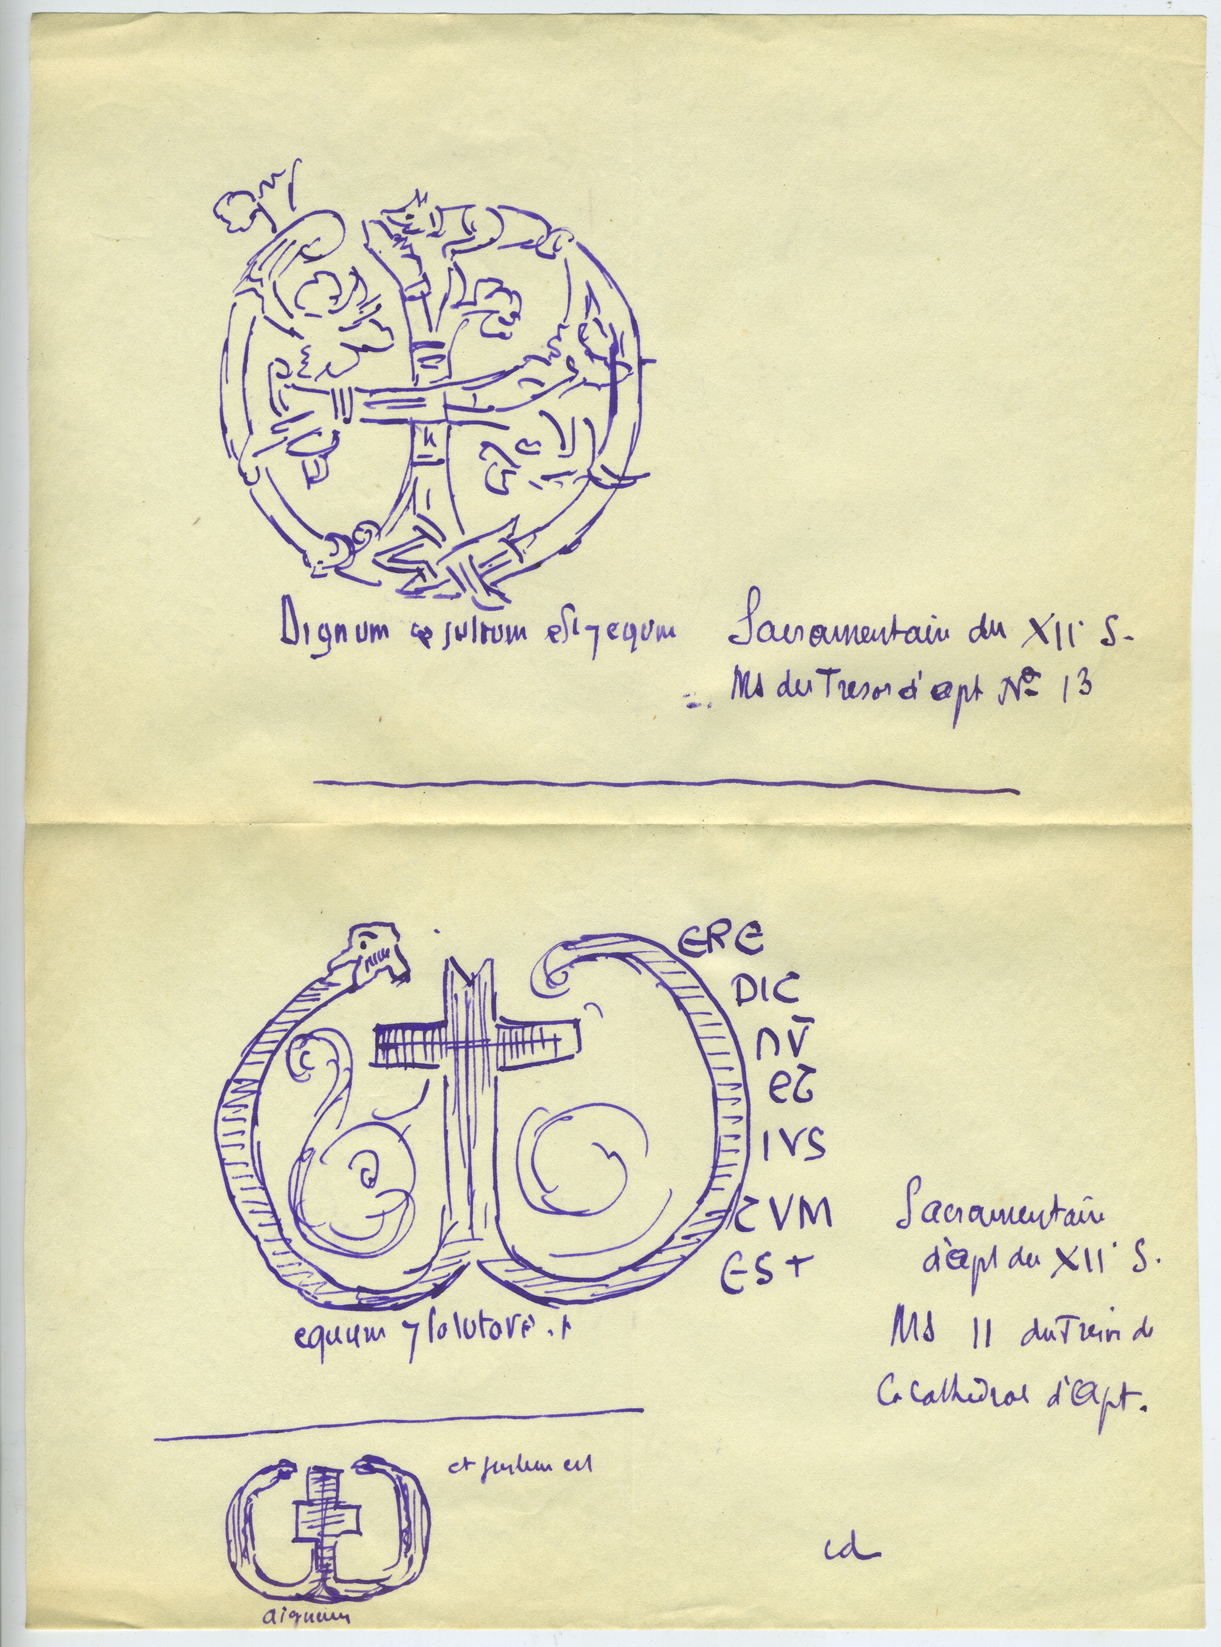 Dignum et justum est ⁊ equm
Sacramentaire du XII S.
Ms du Tresor d'apt Nº 13
ERE
DIC
NV̄
ET
IVS
TVM
EST
equum ⁊ salutare . +
Sacramentaire
d'apt du XII S.
Ms 11 du Tresor de
la Cathédral d'Apt.
et justum est
dignum
id